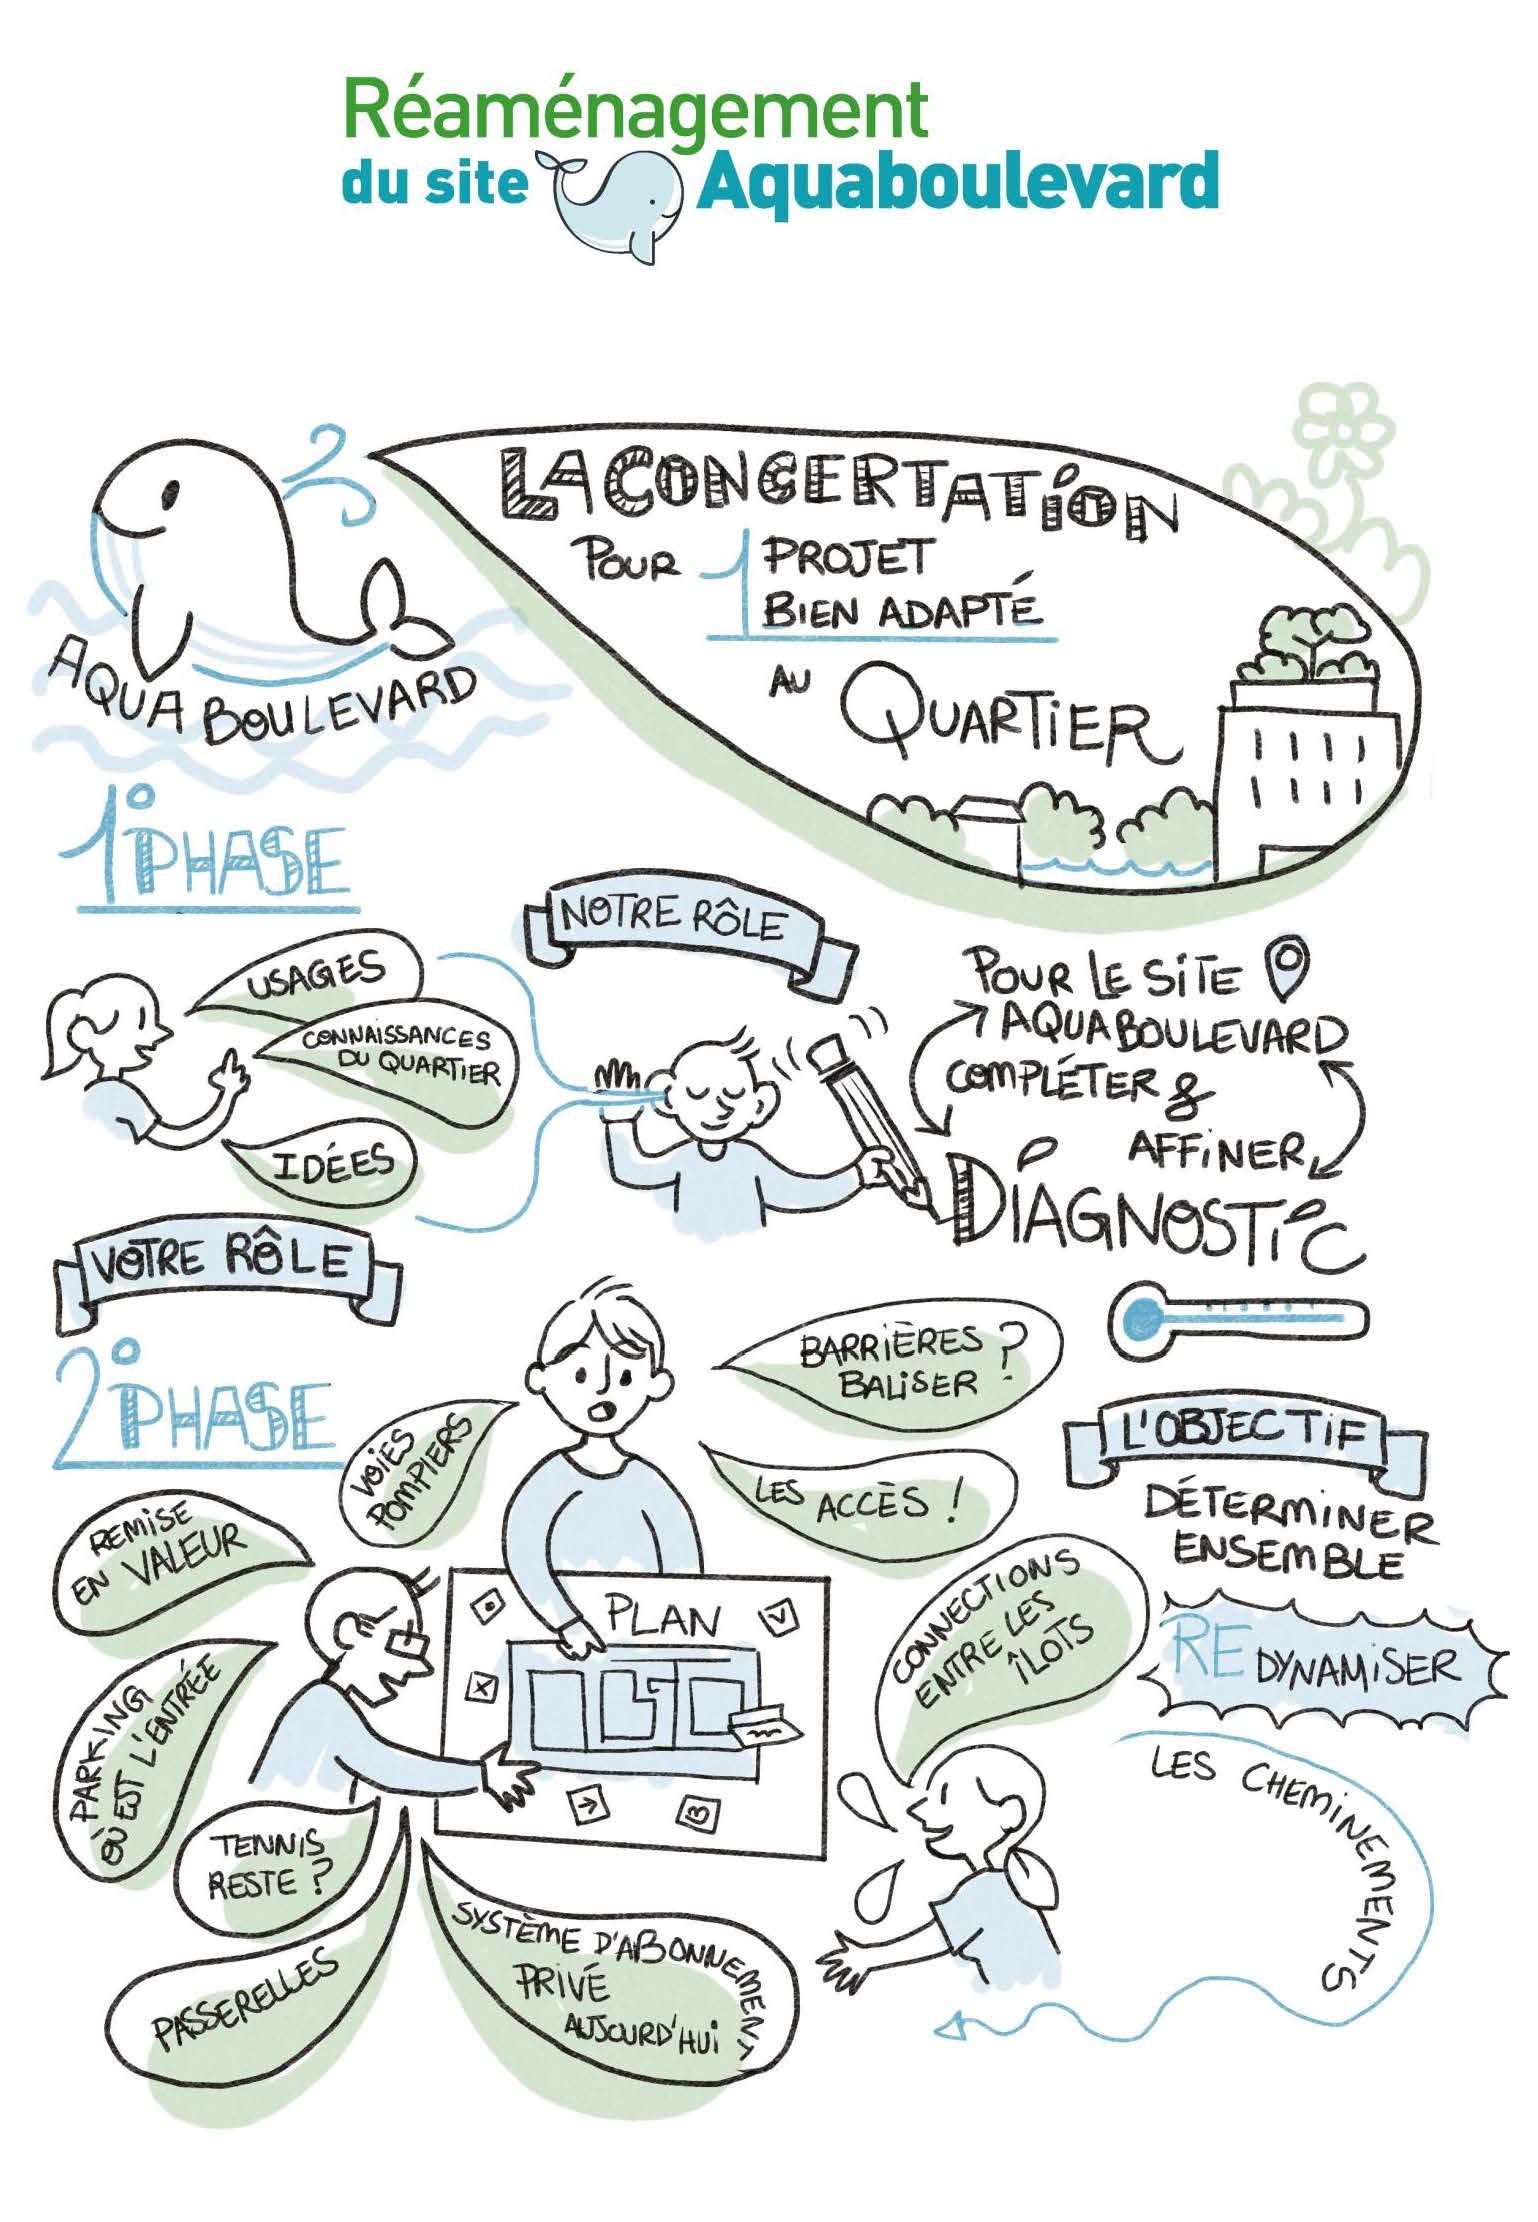 Réaménagement
du site Aquaboulevard
LA CONCERTATION
POUR 1 PROJET
BIEN ADAPTÉ
AU QUARTIER
AQUA BOULEVARD
1° PHASE
NOTRE RÔLE
USAGES
CONNAISSANCES
DU QUARTIER
IDÉES
VOTRE RÔLE
POUR LE SITE
AQUABOULEVARD
COMPLÉTER &
AFFINER
DIAGNOSTIC
2° PHASE
BARRIÈRES ?
BALISER
VOIES
POMPIERS
LES ACCÈS !
L'OBJECTIF
DÉTERMINER
ENSEMBLE
REDYNAMISER
LES CHEMINEMENTS
REMISE
EN VALEUR
PLAN
CONNECTIONS
ENTRE LES
ÎLOTS
PARKING
OÙ EST L'ENTRÉE
TENNIS
RESTE ?
PASSERELLES
SYSTÈME D'ABONNEMENT
PRIVÉ
AUJOURD'HUI